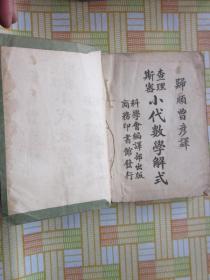 歸順曾彥譯
查理斯密小代數學解式
科學會編譯部出版
商務印書館發行